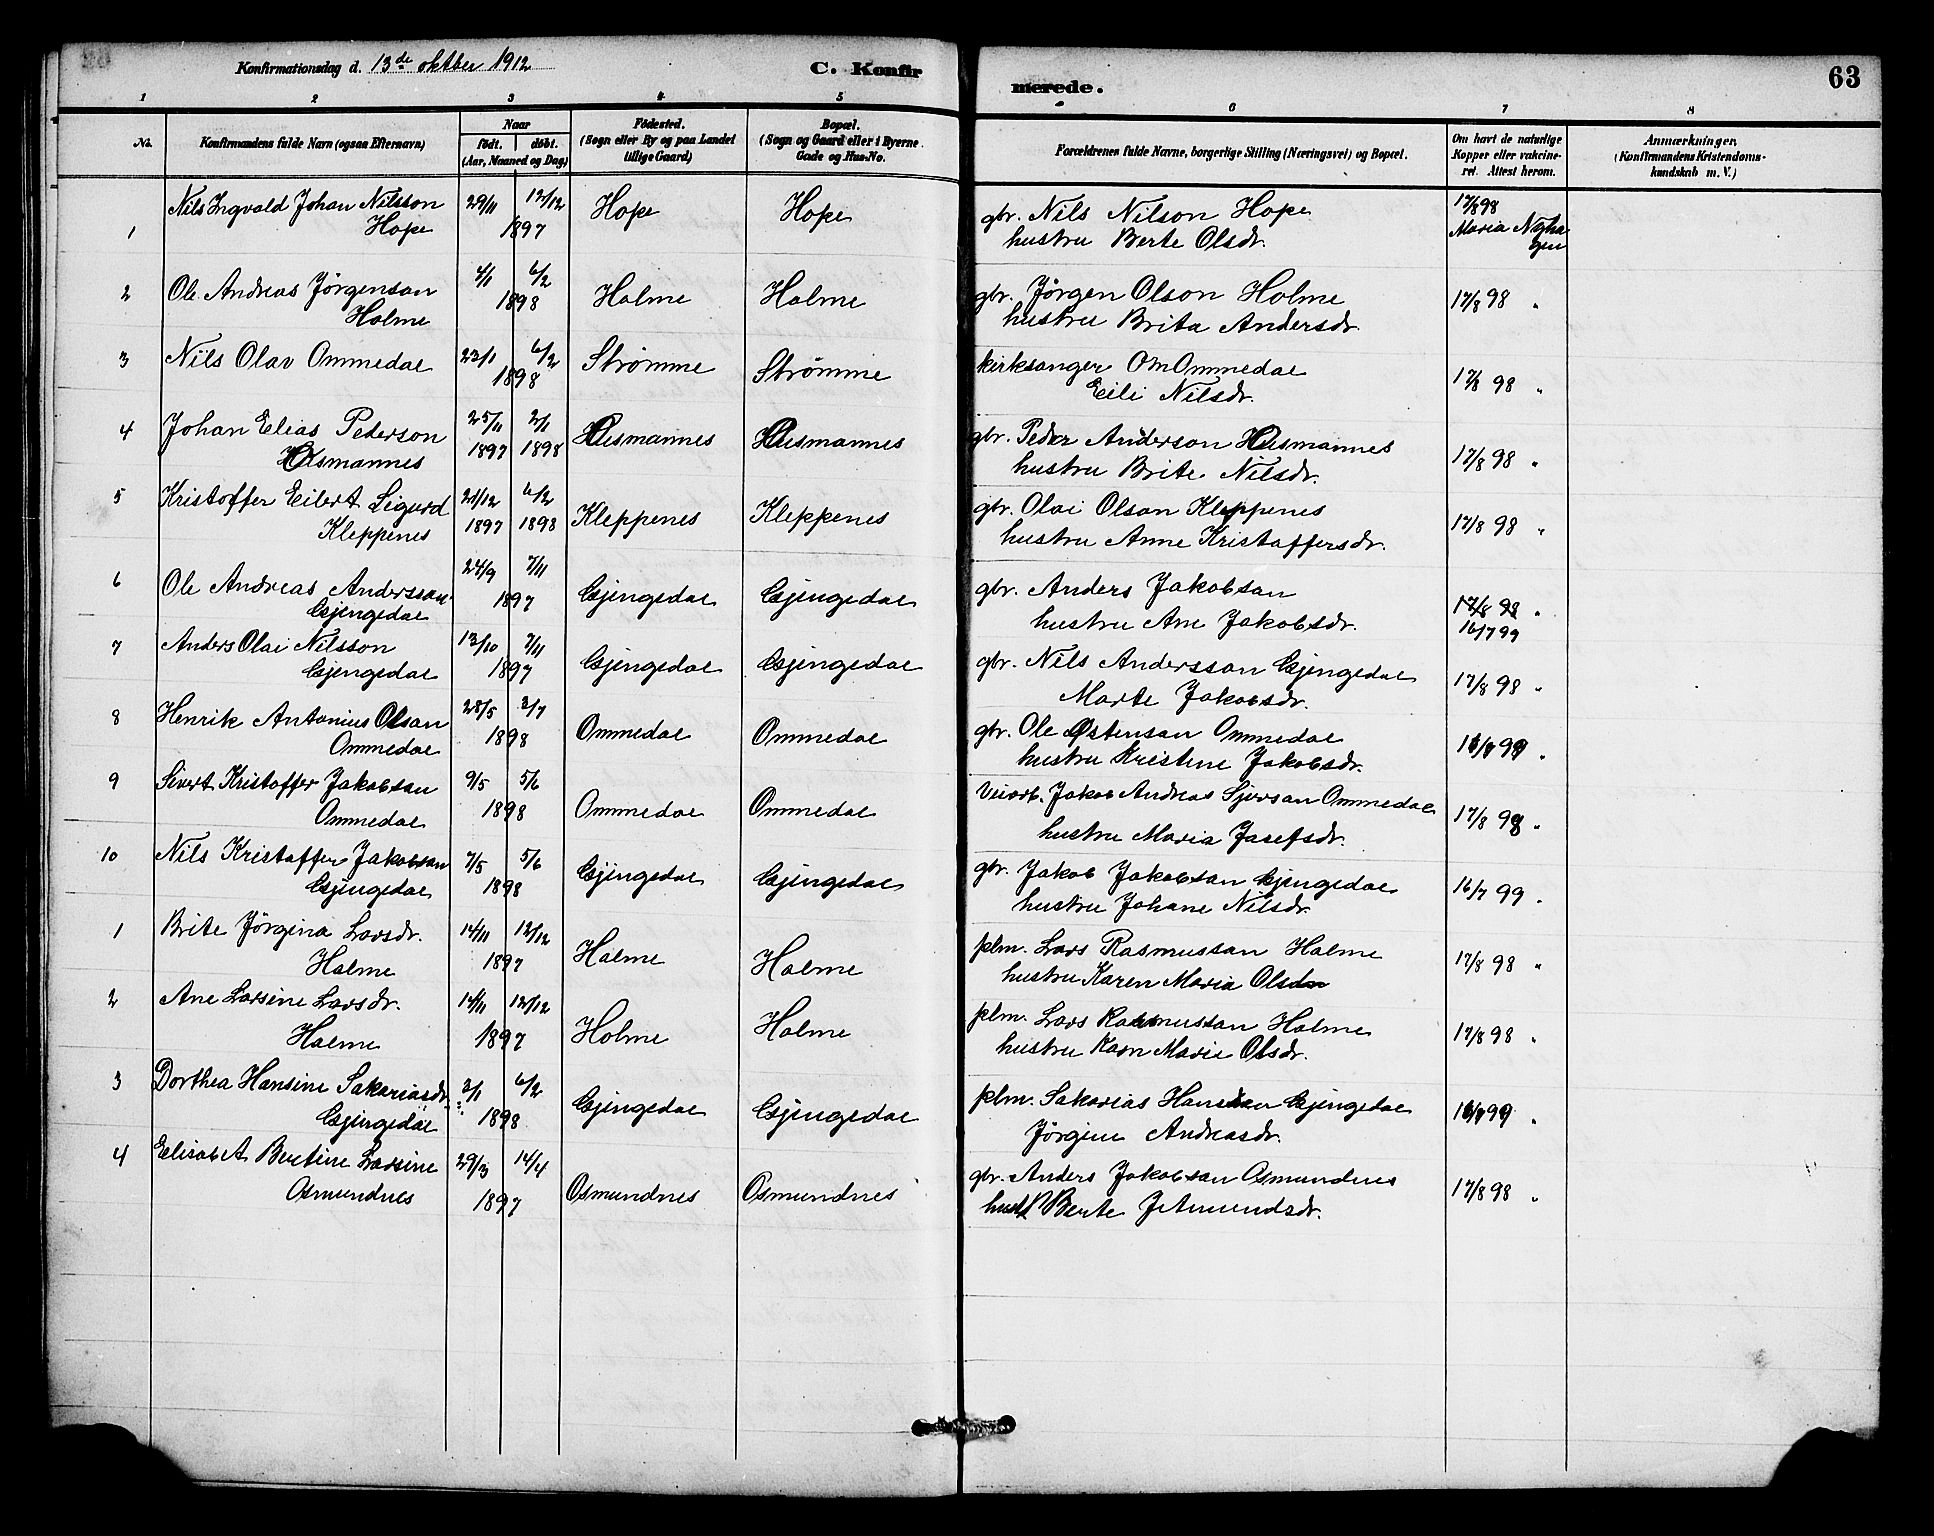 Konfirmationsdag d. 13de oktber 1912
C. Konfirmerede.
63
1 2 3 4 5 6 7 8
No.
Konfirmandens fulde Navn (ogsaa Efternavn)
Naar
födt. döbt.
(Aar, Maaned og Dag)
Födested.
(Sogn eller By og paa Landet
tillige Gaard)
Bopæl.
(Sogn og Gaard eller i Byerne
Gade og Hus-No.
Forældrenes fulde Navne, borgerlige Stilling (Næringsvei) og Bopæl.
Om havt de naturlige
Kopper eller vakcine-
ret. Attest herom.
Anmærkninger.
(Konfirmandens Kristendoms-
kundskab m. V.)
1 Nils Ingvald Johan Nilsson 29/11 12/12 Hope Hope gbr. Nils Nilson Hope 17/8 98
Hope 1897 hustru Berte Olsdr. Maria
2 Ole Andreas Jörgenson 4/1 6/2 Holme Holme gbr. Jörgen Olson Holme 17/8 98 "
Holme 1898 hustru Brita Andersdr.
3 Nils Olav Ommedal 23/1 6/2 Strömme Strömme kirksanger OMOmmedal 17/8 98 "
1898 Eili Nilsdr.
4 Johan Elias Pederson 25/11 2/1 Husmannes Husmannes gbr. Peder Anderson Husmannes 17/8 98 "
Husmannes 1897 1898 hustru Brite Nilsdr.
5 Kristoffer Eilert Sigurd 21/12 6/2 Kleppenes Kleppenes gbr. Olai Olson Kleppenes 17/8 98 "
Kleppenes 1897 1898 hustru Anne Kristoffersdr.
6 Ole Andreas Andersson 24/9 7/11 Gjengedal Gjengedal gbr. Anders Jakobson 17/8 98 "
Gjengedal 1897 hustru Ane Jakobsdr. 16/7 99
7 Anders Olai Nilsson 13/10 7/11 Gjengedal Gjengedal gbr. Nils Andersson Gjengedal 17/8 98 "
Gjengedal 1897 Marte Jakobsdr.
8 Henrik Antonius Olson 28/5 3/7 Ommedal Ommedal gbr. Ole Østenson Ommedal 16/7 99 "
Ommedal 1898 hustru Kristine Jakobsdr.
9 Sivert Kristoffer Jakobson 9/5 5/6 Ommedal Ommedal Veiarb. Jakob Andreas Sjurson Ommedal 17/8 98 "
Ommedal 1898 hustru Maria Josefsdr.
10 Nils Kristoffer Jakobson 7/5 5/6 Gjengedal Gjengedal gbr. Jakob Jakobson Gjengedal 16/7 99 "
Gjengedal 1898 hustru Johane Nilsdr.
1 Brite Jörgina Larsdr. 14/11 12/12 Holme Holme plm. Lars Rasmusson Holme 17/8 98 "
Holme 1897 hustru Karen Maria Olsdr
2 Ane Larsine Larsdr. 14/11 12/12 Holme Holme plm. Lars Rasmusson Holme 17/8 98 "
Holme 1897 hustru Karn Marie Olsdr.
3 Dorthea Hansine Sakariasdr. 3/1 6/2 Gjengedal Gjengedal plm. Sakarias Hansson Gjengedal 16/7 99 "
Gjengedal 1898 Jörgine Andreasdr.
4 Elisabet Bertine Larsine 29/3 14/4 Osmundnes Osmundnes gbr. Anders Jakobson Osmundnes 17/8 98 "
Osmundnes 1897 Berte J Amundsdr.